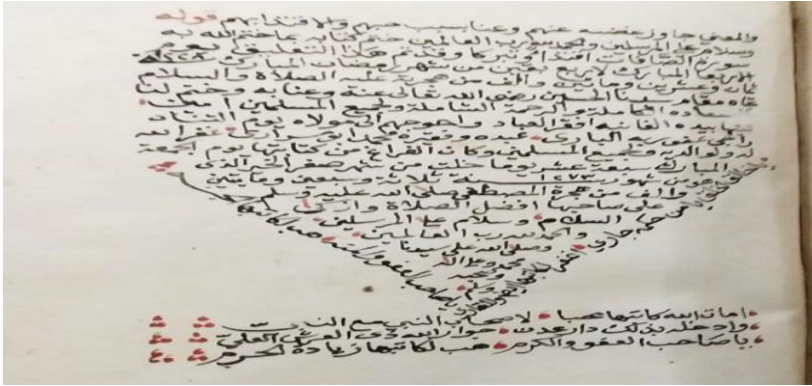 والمعنى جاوز غضبه عنهم وعنا بسبب حبهم والاقتدا بهم قوله
وسلام على المرسلين والحمد لله رب العالمين ختم كتابه بما ختم الله به
سورة الصافات اقتداء وتبركا وقد تم هذا التعليق يوم
الاربعا المبارك لاربع بقين من شهر رمضان المبارك سنة ١٢٢٨
ثمان وعشرين ومايتين والف من هجرية عليه الصلاة والسلام
تجاه مقام سيدنا الحسين رضي الله تعالى عنه وعنا به وختم لنا
بالسعادة الكاملة والرحمة الشاملة ولجميع المسلمين امين
بيده الفانية افقر العباد واحوجهم الى مولاه يوم التناد
راجي عفو ربه الباري عبده وفقيره محمد غفر الله
له ولوالديه ولجميع المسلمين وكان الفراغ من كتابتها يوم الجمعة
المبارك سبعة عشر يوما خلت من شهر صفر الخير الذي
هو من شهور ١٢٧٣ سنة ثلاثة وسبعين ومايتين
والف من هجرة المصطفى صلى الله عليه وسلم
على صاحبها افضل الصلاة وازكى
السلام وسلام على المرسلين
والحمد لله رب العالمين
وصلى الله على سيدنا
محمد وعلى اله
وصحبه
وسلم
يا صاحب العفو
امات الله كاتبها محبا لاصحاب النبي مع النبي
وادخله بذلك دار عدن جوار الله ذي العرش العلي
يا صاحب العفو والكرم هب لكاتبها زيادة الحرم